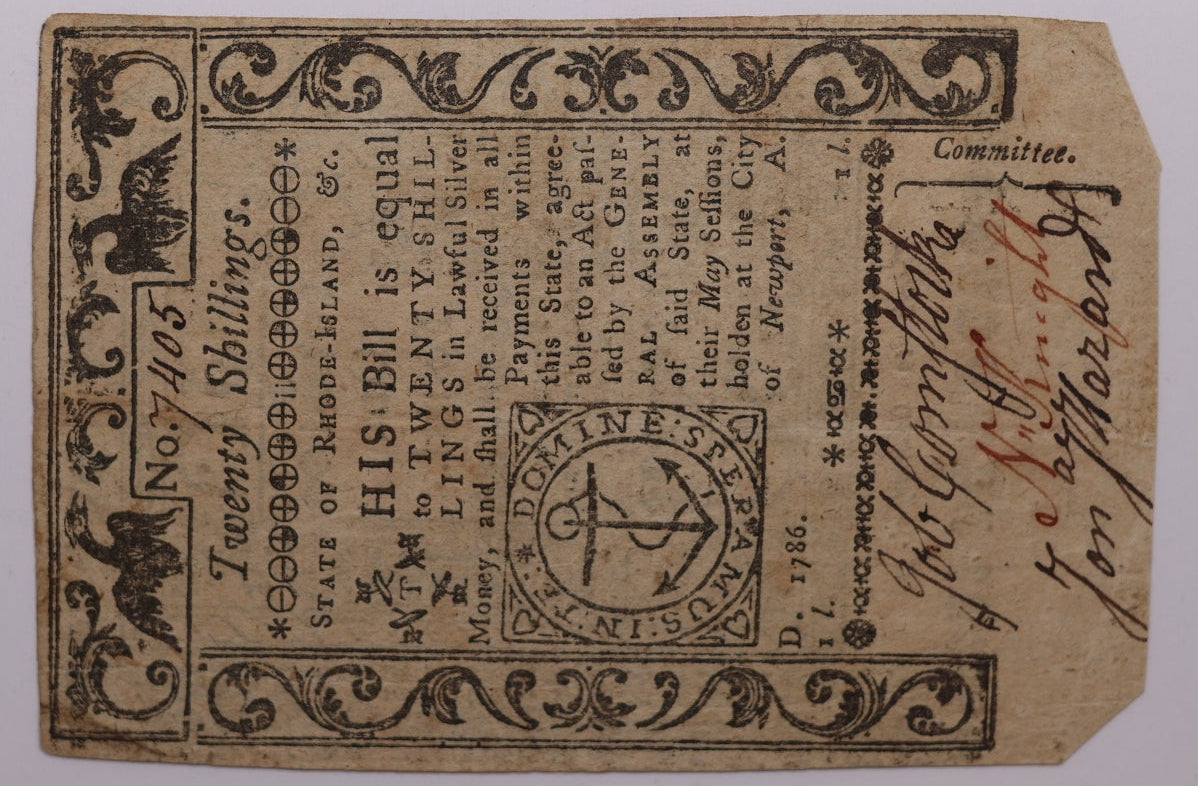 No. 7405
Twenty Shillings.
STATE OF RHODE-ISLAND, &c.
THIS Bill is equal
to TWENTY SHIL-
LINGS in Lawful Silver
Money, and ſhall be received in all
Payments within
this State, agree-
able to an Act paſ-
ſed by the GENE-
RAL ASSEMBLY
of ſaid State, at
their May Seſſions,
holden at the City
of Newport, A.
D. 1786.
DOMINE: SPERAMUS: IN: TE:
1 l. 1 l.
Job Comſtock
Committee.
Jon a Hazard